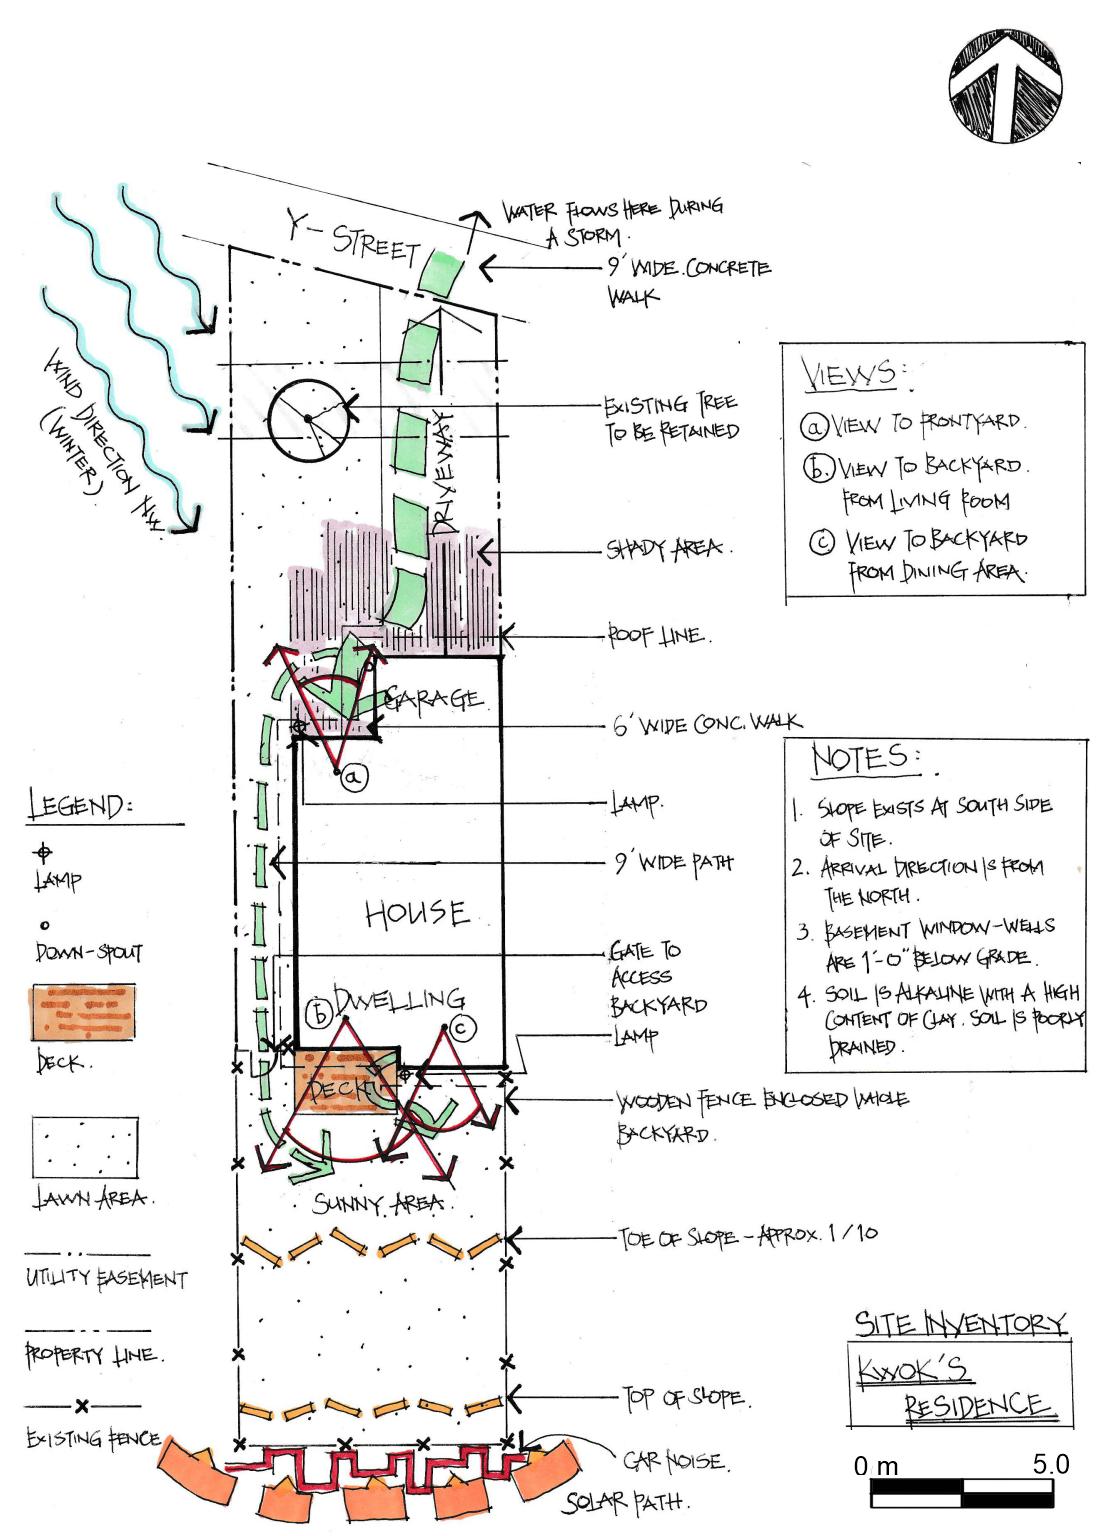 Y-STREET
WATER FLOWS HERE DURING
A STORM.
9' WIDE CONCRETE
WALK
WIND DIRECTION NW.
(WINTER)
EXISTING TREE
TO BE RETAINED
DRIVEWAY
SHADY AREA.
ROOF LINE.
GARAGE
6' WIDE CONC. WALK
a
LAMP.
9' WIDE PATH
HOUSE
GATE TO
ACCESS
BACKYARD
DWELLING
b
c
LAMP
DECK
WOODEN FENCE ENCLOSED WHOLE
BACKYARD.
SUNNY AREA.
TOE OF SLOPE - APPROX. 1/10
TOP OF SLOPE.
CAR NOISE.
SOLAR PATH.
VIEWS:
a VIEW TO FRONTYARD.
b. VIEW TO BACKYARD.
FROM LIVING ROOM
c VIEW TO BACKYARD
FROM DINING AREA.
NOTES:
1. SLOPE EXISTS AT SOUTH SIDE
OF SITE.
2. ARRIVAL DIRECTION IS FROM
THE NORTH.
3. BASEMENT WINDOW-WELLS
ARE 1'-0" BELOW GRADE.
4. SOIL IS ALKALINE WITH A HIGH
CONTENT OF CLAY. SOIL IS POORLY
DRAINED.
LEGEND:
LAMP
DOWN-SPOUT
DECK.
LAWN AREA.
UTILITY EASEMENT
PROPERTY LINE.
EXISTING FENCE
SITE INVENTORY
KWOK'S
RESIDENCE
0 m 5.0